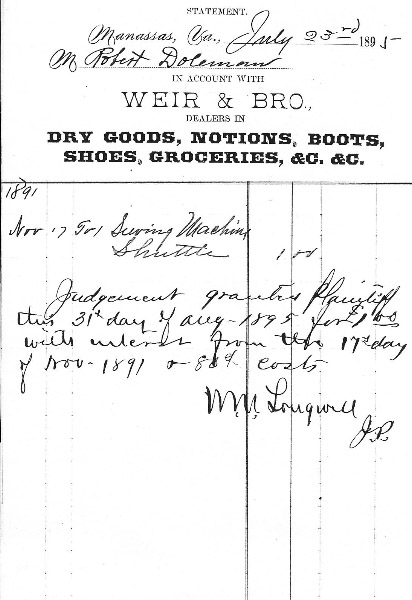 STATEMENT.
Manassas, Va., July 23rd 1895
M Robert Doleman
IN ACCOUNT WITH
WEIR & BRO.,
DEALERS IN
DRY GOODS, NOTIONS, BOOTS,
SHOES, GROCERIES, &C. &C.
1891
Nov 17 To 1 Sewing Machine
Shuttle 1 00
Judgement granted Plaintiff
this 31st day of Aug- 1895 for $1.00
with interest from the 17th day
of Nov- 1891 & costs
Longwell
J.P.